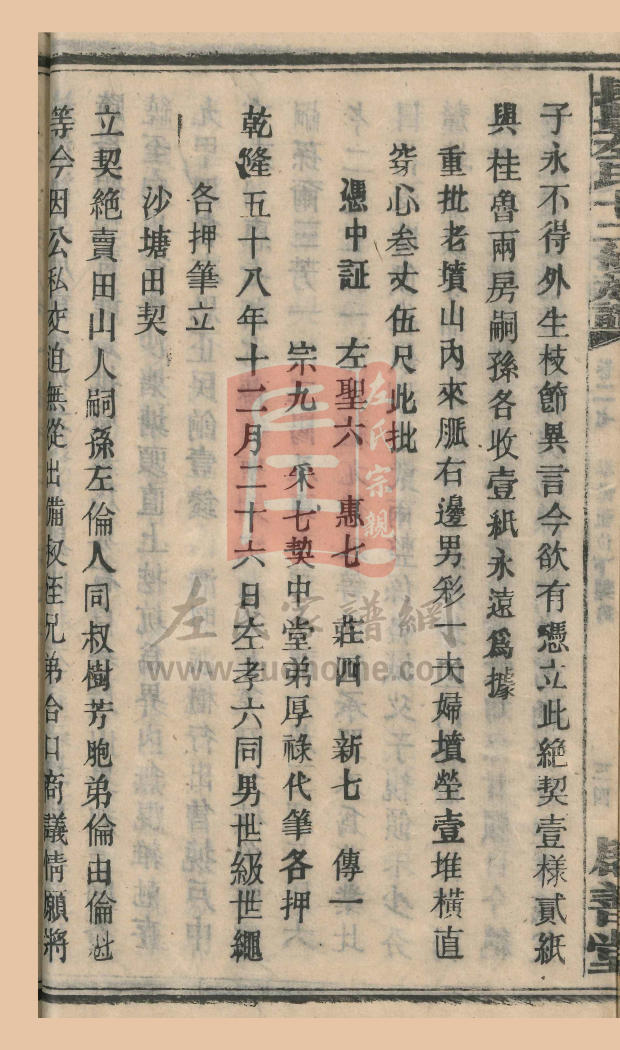 子永不得外生枝節異言今欲有憑立此絶契壹樣貳紙
與桂魯兩房嗣孫各收壹紙永遠爲據
重批老墳山內來脈右邊男彩一夫婦墳塋壹堆橫直
穿心叁丈伍尺此批
憑中証 左聖六 惠七 莊四 新七 傳一
宗九 采七 契中堂弟厚祿代筆各押
乾隆五十八年十二月二十六日左孝六同男世級世繩
各押筆立
沙塘田契
立契絶賣田山人嗣孫左倫人同叔樹芳胞弟倫由倫
等今因公私交迫無從出備叔姪兄弟合口商議情願將
左氏宗親
左氏家譜網
www.zuohome.com